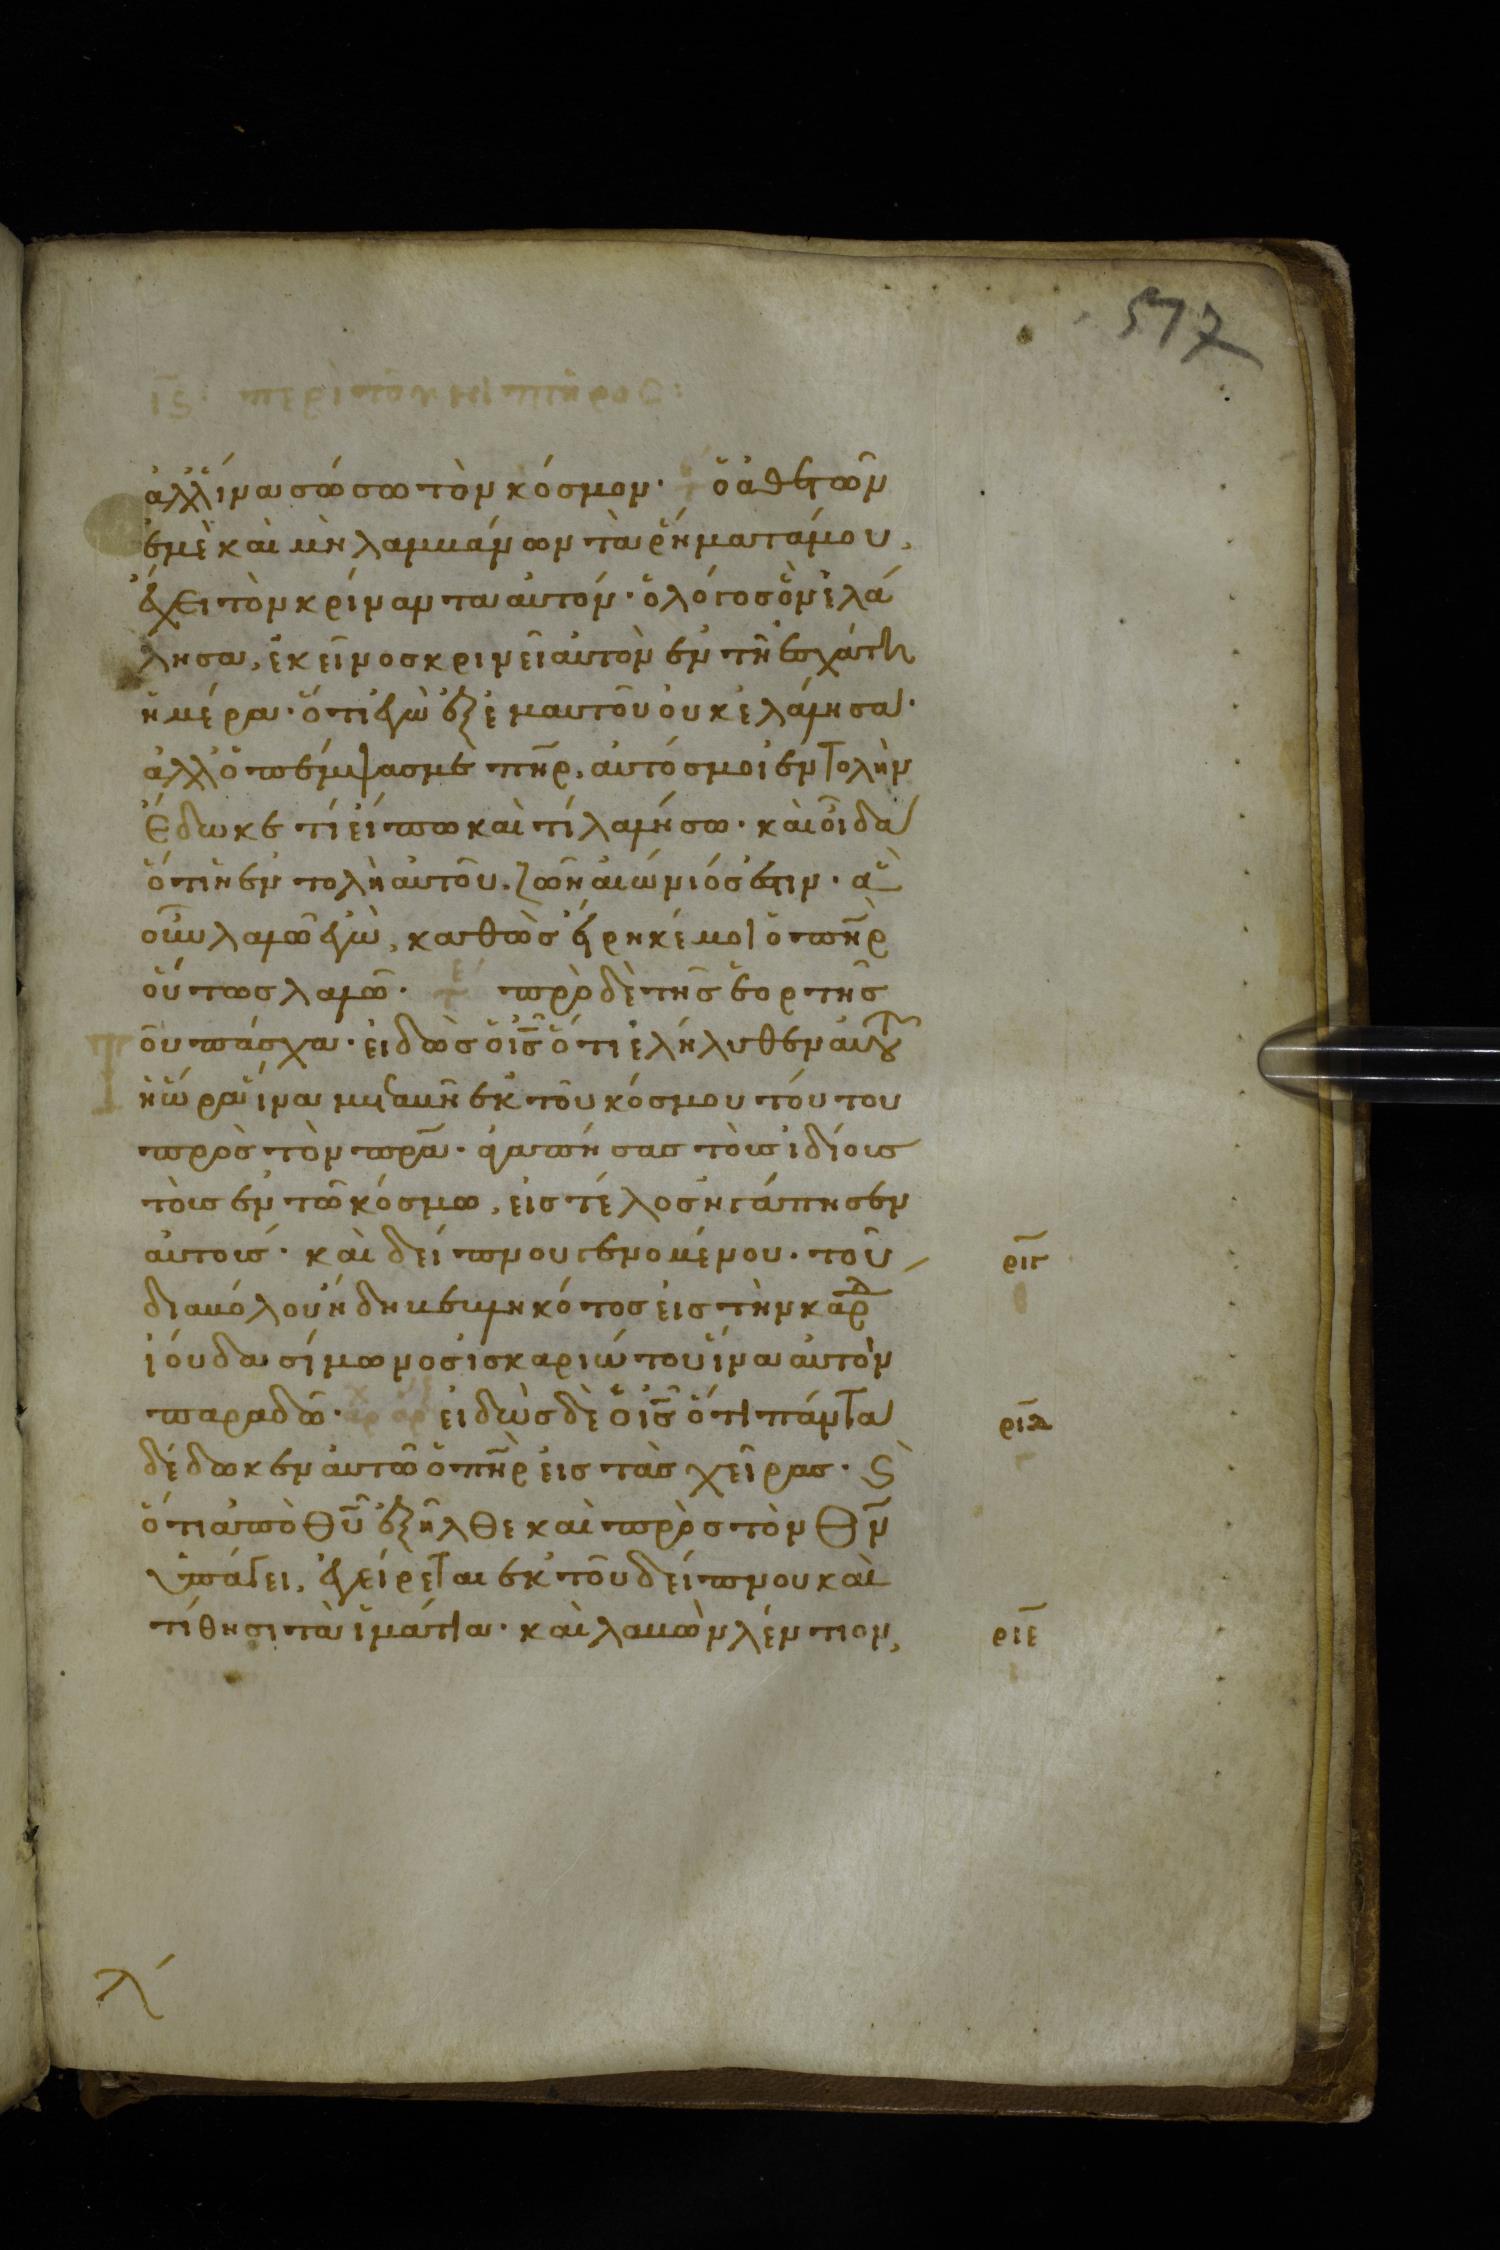 517
ιϛ: περὶ τοῦ νιπτῆρος:
ἀλλ' ἵνα σώσω τὸν κόσμον· ὁ ἀθετῶν
ἐμὲ καὶ μὴ λαμβάνων τὰ ῥήματά μου,
ἔχει τὸν κρίνοντα αὐτόν· ὁ λόγος ὃν ἐλά
λησα, ἐκεῖνος κρινεῖ αὐτὸν ἐν τῆ ἐσχάτη
ἡμέρα· ὅτι ἐγὼ ἐξ ἐμαυτοῦ οὐκ ἐλάλησα·
ἀλλ' ὁ πέμψας με πηρ, αὐτός μοι ἐντολὴν
ἔδωκε τί εἴπω καὶ τί λαλήσω· καὶ οἶδα
ὅτι ἡ ἐντολὴ αὐτοῦ, ζωὴ αἰώνιός ἐστιν· ἃ
οὖν λαλῶ ἐγὼ, καθὼς εἴρηκέ μοι ὁ πηρ
οὕτως λαλῶ· πρὸ δὲ τῆς ἑορτῆς
τοῦ πάσχα· εἰδὼς ὁ ις ὅτι ἐλήλυθεν αὐτοῦ
ἡ ὥρα ἵνα μεταβῆ ἐκ τοῦ κόσμου τούτου
πρὸς τὸν πρα· ἀγαπήσας τοὺς ἰδίους
τοὺς ἐν τῶ κόσμω, εἰς τέλος ἠγάπησεν
αὐτούς· καὶ δείπνου γενομένου· τοῦ ριγ
διαβόλου ἤδη βεβληκότος εἰς τὴν καρδ
ἰούδα σίμωνος ἰσκαριώτου ἵνα αὐτὸν
παραδῶ· εἰδὼς δὲ ὁ ις ὅτι πάντα ριδ
δέδωκεν αὐτῶ ὁ πηρ εἰς τὰς χεῖρας· ϗ
ὅτι ἀπὸ θυ ἐξῆλθε καὶ πρὸς τὸν θν
ὑπάγει, ἐγείρεται ἐκ τοῦ δείπνου καὶ
τίθησι τὰ ἱμάτια· καὶ λαβὼν λέντιον, ριε
λ